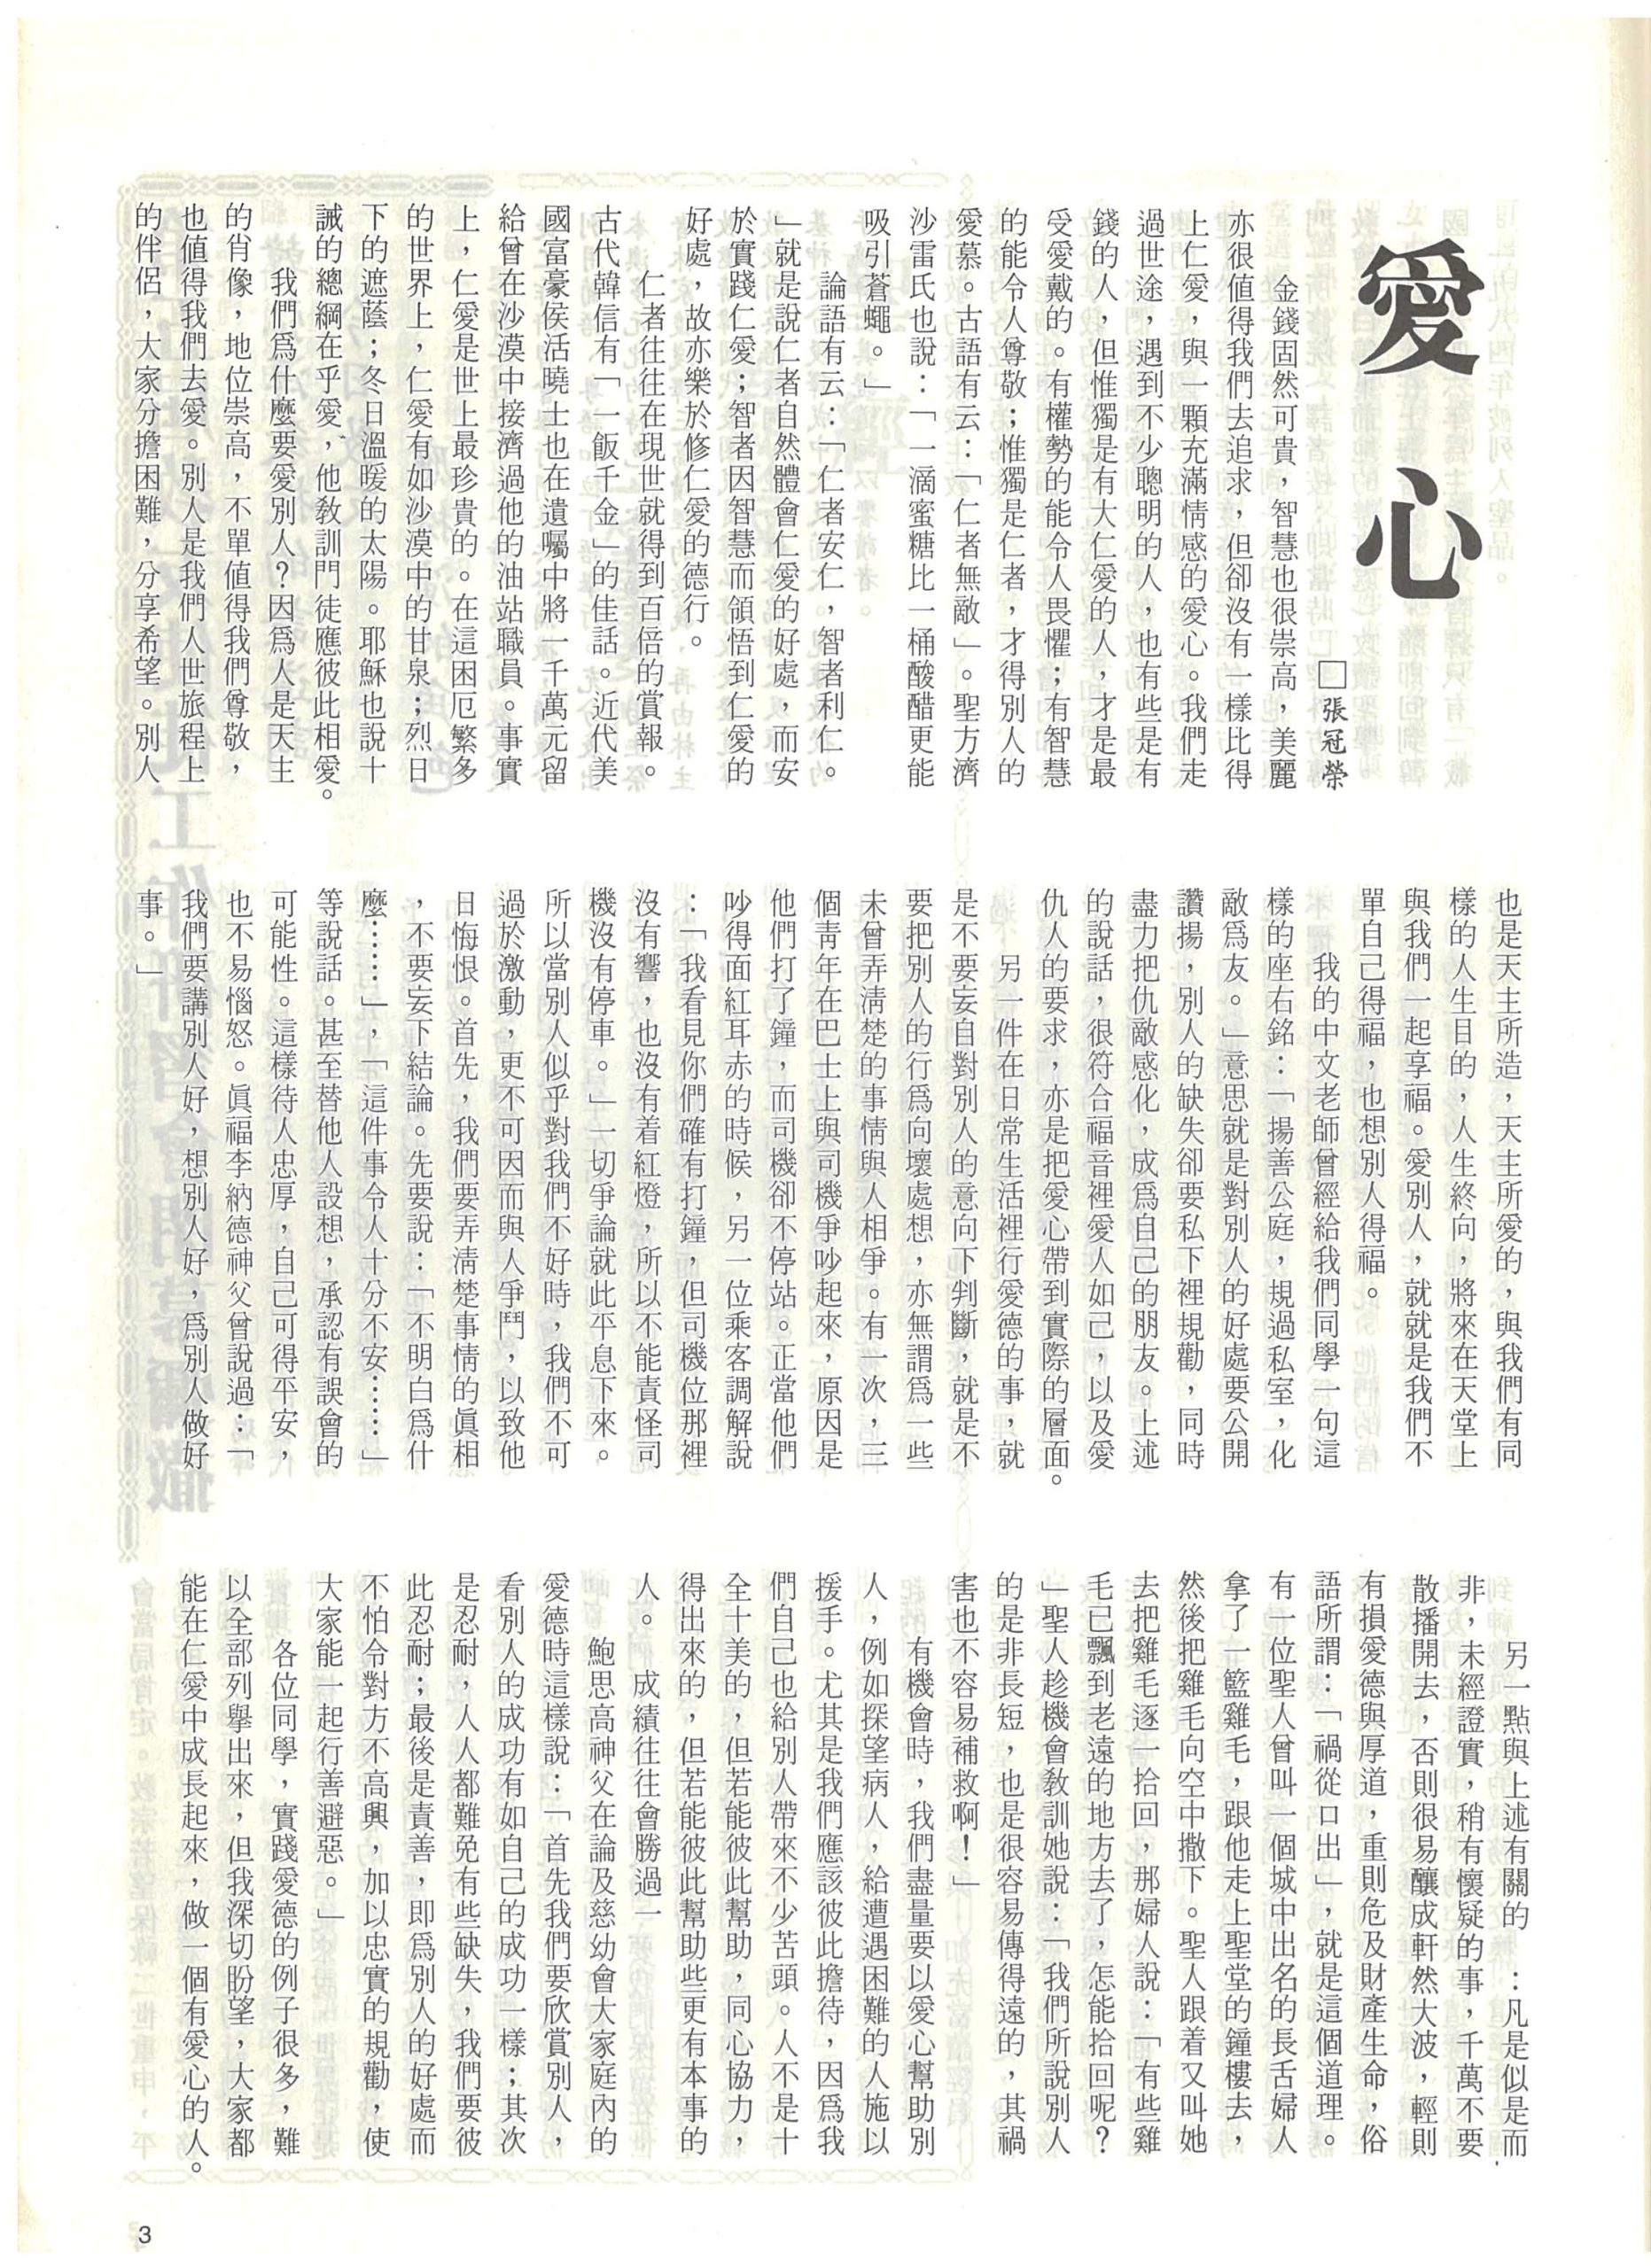 愛心
□張冠榮
金錢固然可貴，智慧也很崇高，美麗
亦很值得我們去追求，但卻沒有一樣比得
上仁愛，與一顆充滿情感的愛心。我們走
過世途，遇到不少聰明的人，也有些是有
錢的人，但惟獨是有大仁愛的人，才是最
受愛戴的。有權勢的能令人畏懼；有智慧
的能令人尊敬；惟獨是仁者，才得別人的
愛慕。古語有云：「仁者無敵」。聖方濟
沙雷氏也說：「一滴蜜糖比一桶酸醋更能
吸引蒼蠅。」
論語有云：「仁者安仁，智者利仁。
」就是說仁者自然體會仁愛的好處，而安
於實踐仁愛；智者因智慧而領悟到仁愛的
好處，故亦樂於修仁愛的德行。
仁者往往在現世就得到百倍的賞報。
古代韓信有「一飯千金」的佳話。近代美
國富豪侯活曉士也在遺囑中將一千萬元留
給曾在沙漠中接濟過他的油站職員。事實
上，仁愛是世上最珍貴的。在這困厄繁多
的世界上，仁愛有如沙漠中的甘泉；烈日
下的遮蔭；冬日溫暖的太陽。耶穌也說十
誡的總綱在乎愛，他教訓門徒應彼此相愛。
我們爲什麼要愛別人？因爲人是天主
的肖像，地位崇高，不單值得我們尊敬，
也值得我們去愛。別人是我們人世旅程上
的伴侶，大家分擔困難，分享希望。別人
也是天主所造，天主所愛的，與我們有同
樣的人生目的，人生終向，將來在天堂上
與我們一起享福。愛別人，就就是我們不
單自己得福，也想別人得福。
我的中文老師曾經給我們同學一句這
樣的座右銘：「揚善公庭，規過私室，化
敵爲友。」意思就是對別人的好處要公開
讚揚，別人的缺失卻要私下裡規勸，同時
盡力把仇敵感化，成爲自己的朋友。上述
的說話，很符合福音裡愛人如己，以及愛
仇人的要求，亦是把愛心帶到實際的層面。
另一件在日常生活裡行愛德的事，就
是不要妄自對別人的意向下判斷，就是不
要把別人的行爲向壞處想，亦無謂爲一些
未曾弄清楚的事情與人相爭。有一次，三
個靑年在巴士上與司機爭吵起來，原因是
他們打了鐘，而司機卻不停站。正當他們
吵得面紅耳赤的時候，另一位乘客調解說
：「我看見你們確有打鐘，但司機位那裡
沒有響，也沒有着紅燈，所以不能責怪司
機沒有停車。」一切爭論就此平息下來。
所以當別人似乎對我們不好時，我們不可
過於激動，更不可因而與人爭鬥，以致他
日悔恨。首先，我們要弄淸楚事情的眞相
，不要妄下結論。先要說：「不明白爲什
麼……」，「這件事令人十分不安……」
等說話。甚至替他人設想，承認有誤會的
可能性。這樣待人忠厚，自己可得平安，
也不易惱怒。眞福李納德神父曾說過：「
我們要講別人好，想別人好，爲別人做好
事。」
另一點與上述有關的：凡是似是而
非，未經證實，稍有懷疑的事，千萬不要
散播開去，否則很易釀成軒然大波，輕則
有損愛德與厚道，重則危及財產生命，俗
語所謂：「禍從口出」，就是這個道理。
有一位聖人曾叫一個城中出名的長舌婦人
拿了一籃雞毛，跟他走上聖堂的鐘樓去，
然後把雞毛向空中撒下。聖人跟着又叫她
去把雞毛逐一拾回，那婦人說：「有些雞
毛已飄到老遠的地方去了，怎能拾回呢？
」聖人趁機會教訓她說：「我們所說別人
的是非長短，也是很容易傳得遠的，其禍
害也不容易補救啊！」
有機會時，我們盡量要以愛心幫助別
人，例如探望病人，給遭遇困難的人施以
援手。尤其是我們應該彼此擔待，因爲我
們自己也給別人帶來不少苦頭。人不是十
全十美的，但若能彼此幫助，同心協力，
得出來的，但若能彼此幫助些更有本事的
人。　成績往往會勝過一
鮑思高神父在論及慈幼會大家庭內的
愛德時這樣說：「首先我們要欣賞別人，
看別人的成功有如自己的成功一樣；其次
是忍耐，人人都難免有些缺失，我們要彼
此忍耐；最後是責善，即爲別人的好處而
不怕令對方不高興，加以忠實的規勸，使
大家能一起行善避惡。」
各位同學，實踐愛德的例子很多，難
以全部列擧出來，但我深切盼望，大家都
能在仁愛中成長起來，做一個有愛心的人。
3